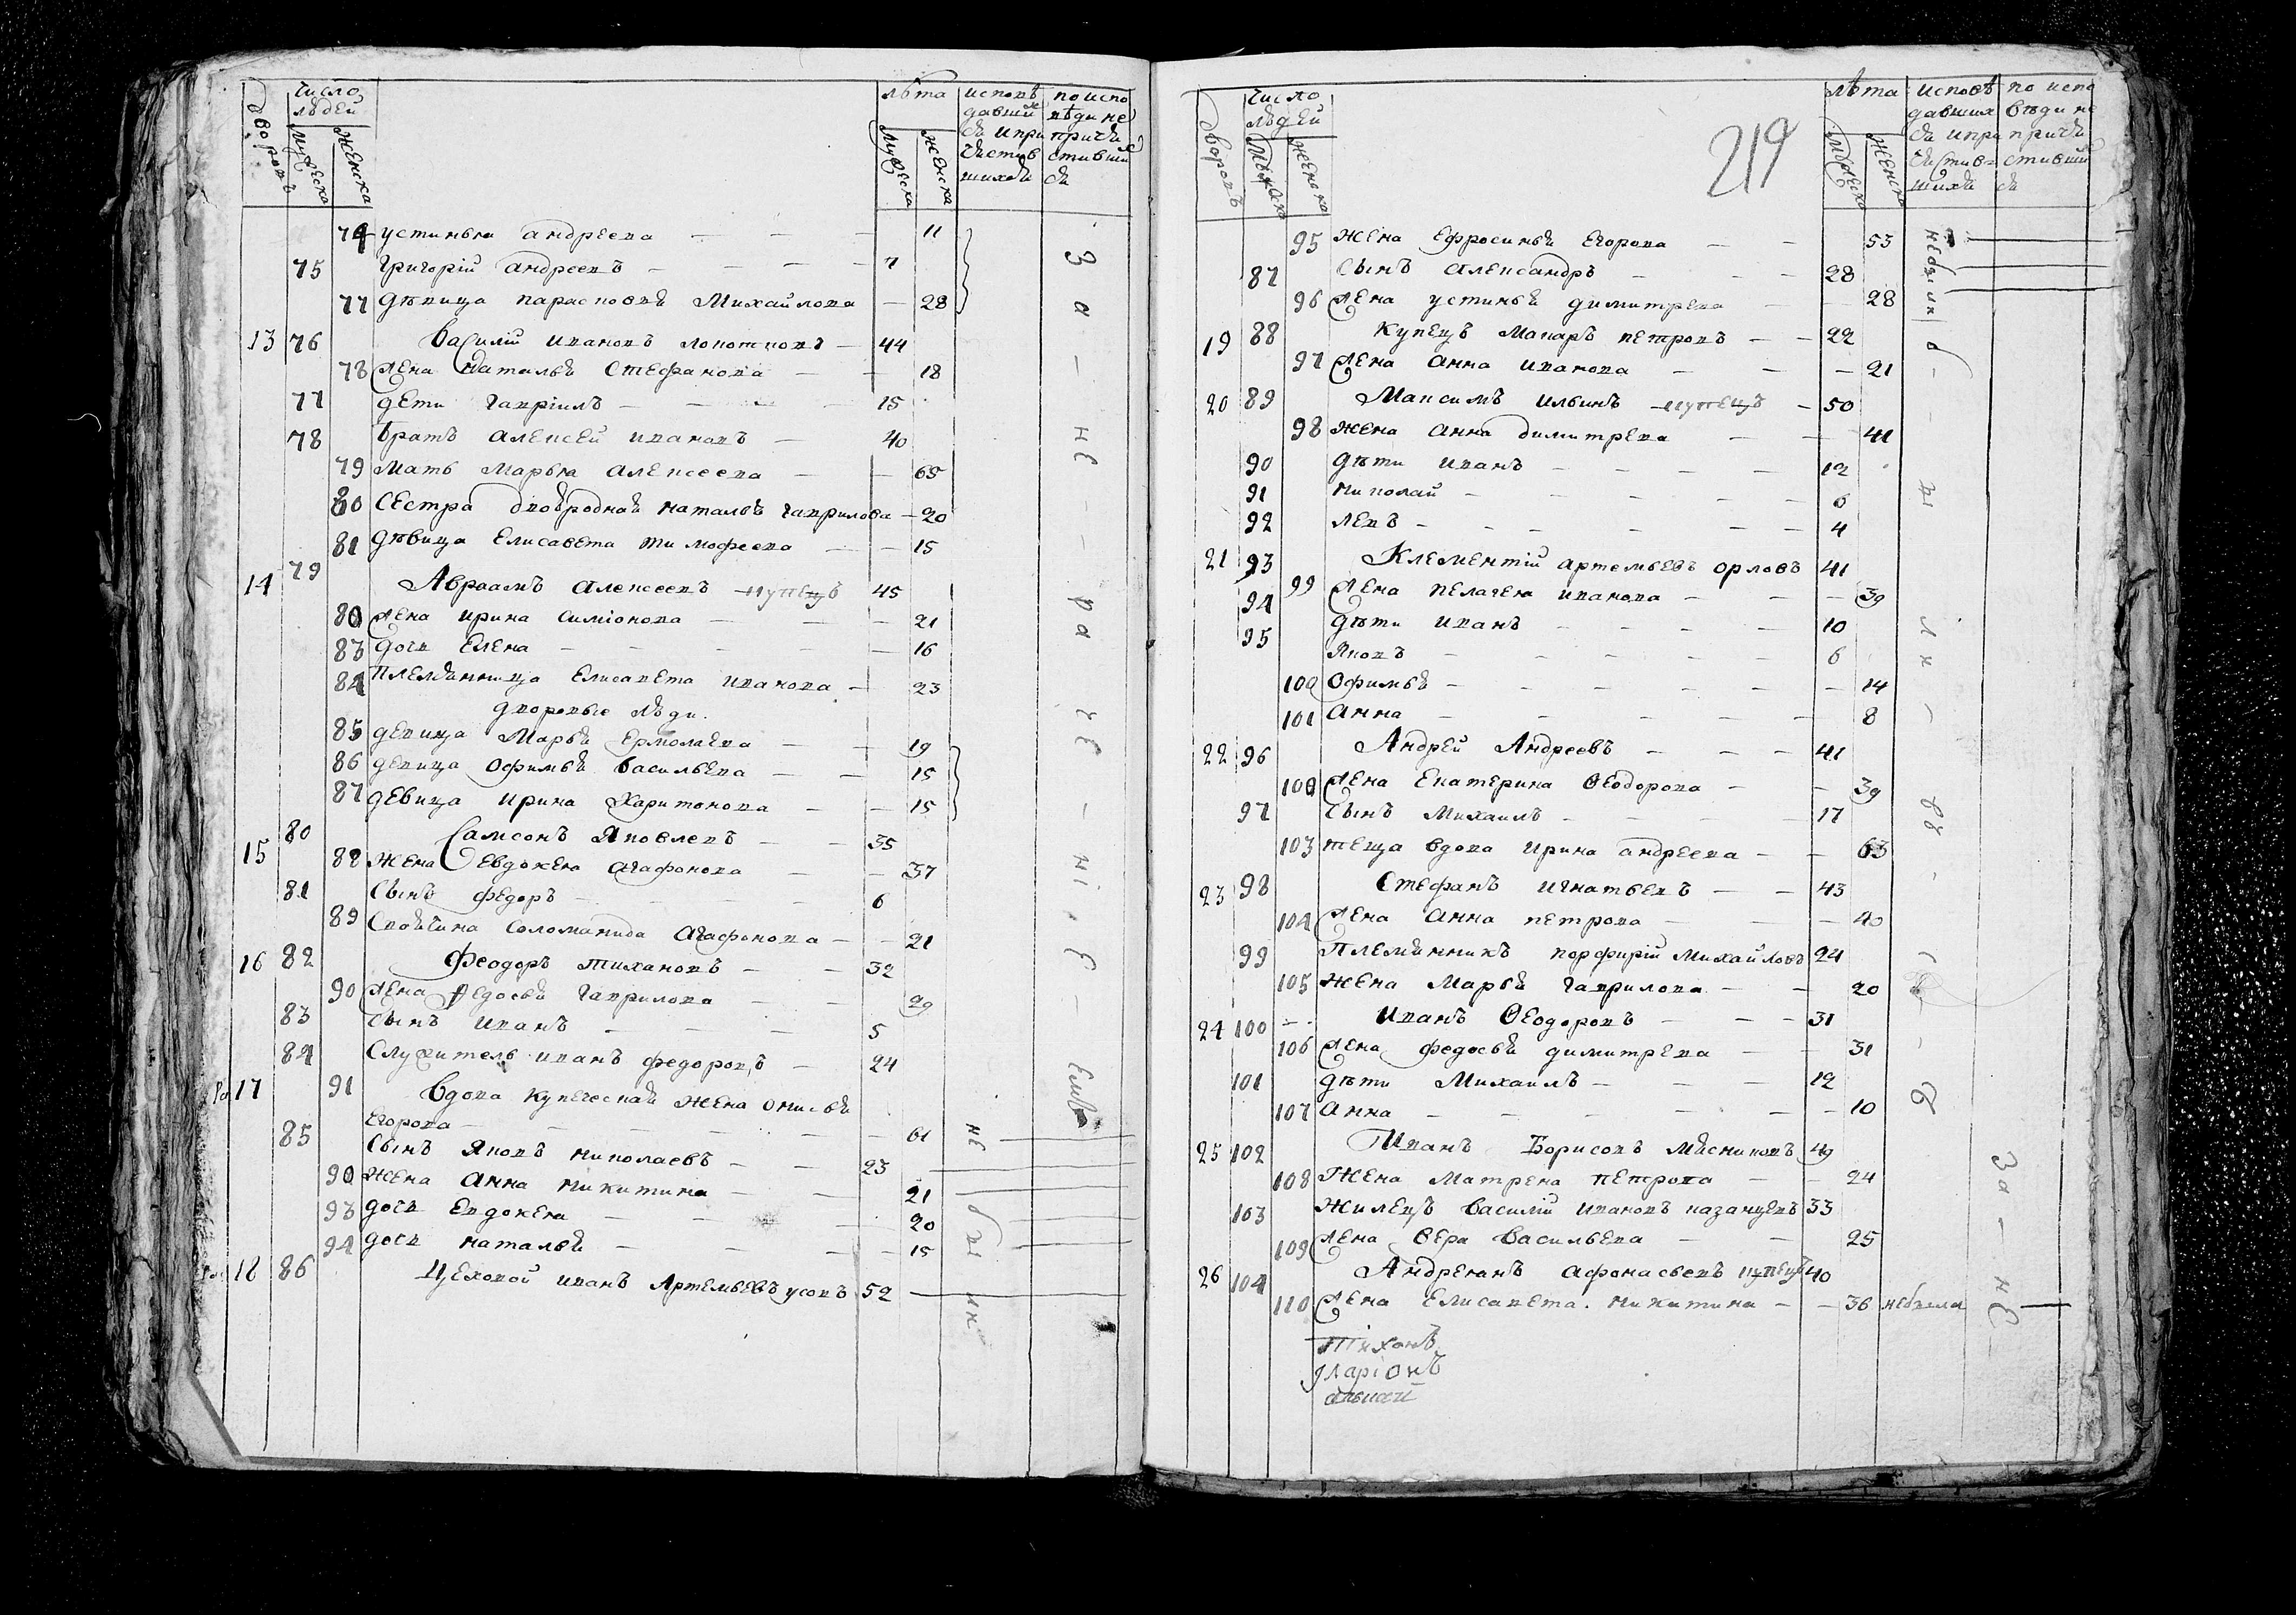 дворовъ
число людей
мужеска
женска
лѣта
мужеска
женска
исповѣдавшихся и причастившихся
по исповѣди не причастившихся
74 устинья андреева — — — 11
75 григорій андреевъ — — — 7
77 дѣвица парасковья Михайлова — 28
13 76 Василій ивановъ — 44
78 жена наталья Стефанова — — 18
77 дети гавріилъ — — — 15
78 братъ алексей ивановъ — 40
79 мать марья алексеева — — 65
80 сестра двоюродная наталья гаврилова — 20
81 дѣвица елисавета тимофеева — — 15
14 79 Авраамъ алексеевъ купецъ 45
80 жена ирина симіонова — — — 21
83 дочь елена — — — — 16
84 племянница елисавета иванова — 23
дворовые люди.
85 девица марья ермолаева — — 19
86 девица офимья васильева — — 15
87 девица ирина харитонова — — 15
15 80 Самсонъ Яковлевъ — — 35
88 жена евдокея агафонова — — 37
81 сынъ федоръ — — — 6
89 своячина соломанида агафонова — — 21
16 82 Феодоръ тихановъ — — 32
90 жена федосья гаврилова — — 29
83 сынъ иванъ — — — 5
84 служитель иванъ федоровъ — 24
17 91 Вдова купеческая жена онисья
егорова — — — — 61
85 сынъ Яковъ николаевъ — — 23
90 жена анна никитина — — 21
93 дочь евдокея — — — 20
94 дочь наталья — — — — 15
18 86 Цеховой иванъ Артемьевъ усовъ 52
За — не — ра че — ні е — емъ
не были
219
дворовъ
число людей
мужеска
женска
лѣта
мужеска
женска
исповѣдавшихся и причастившихся
по исповѣди не причастившихся
95 жена ефросинья егорова — — 53
87 сынъ александръ — — — 28
96 жена устинья димитрева — — 28
19 88 купецъ макаръ петровъ — — 22
97 жена анна иванова — — — 21
20 89 Максимъ ильинъ купецъ — 50
98 жена анна димитрева — — 41
90 дѣти иванъ — — — — 12
91 николай — — — — — 6
92 левъ — — — — — 4
21 93 Клементій артемьевъ орловъ 41
99 жена пелагея иванова — — — 39
94 дѣти иванъ — — — — 10
95 Яковъ — — — — — 6
100 офимья — — — — — 14
101 анна — — — — — 8
22 96 Андрей Андреевъ — — — 41
100 жена екатерина Ѳеодорова — — 39
97 сынъ михаилъ — — — — 17
103 теща вдова ирина андреева — — 63
23 98 Стефанъ игнатьевъ — — 43
104 жена анна петрова — — — 40
99 племянникъ порфирій михайловъ 24
105 жена марья гаврилова — — 20
24 100 Иванъ Ѳеодоровъ — — — 31
106 жена федосья димитрева — — 31
101 дѣти михаилъ — — — 12
107 анна — — — — — 10
25 102 Иванъ Борисовъ мясниковъ 49
108 жена матрена петрова — — 24
103 жилецъ василій ивановъ казанцевъ 33
109 жена вера васильева — — 25
26 104 Андреянъ афонасьевъ купецъ 40
110 жена елисавета никитина — — 36 небыла
небыли
За — не —
тихонъ
иларіонъ